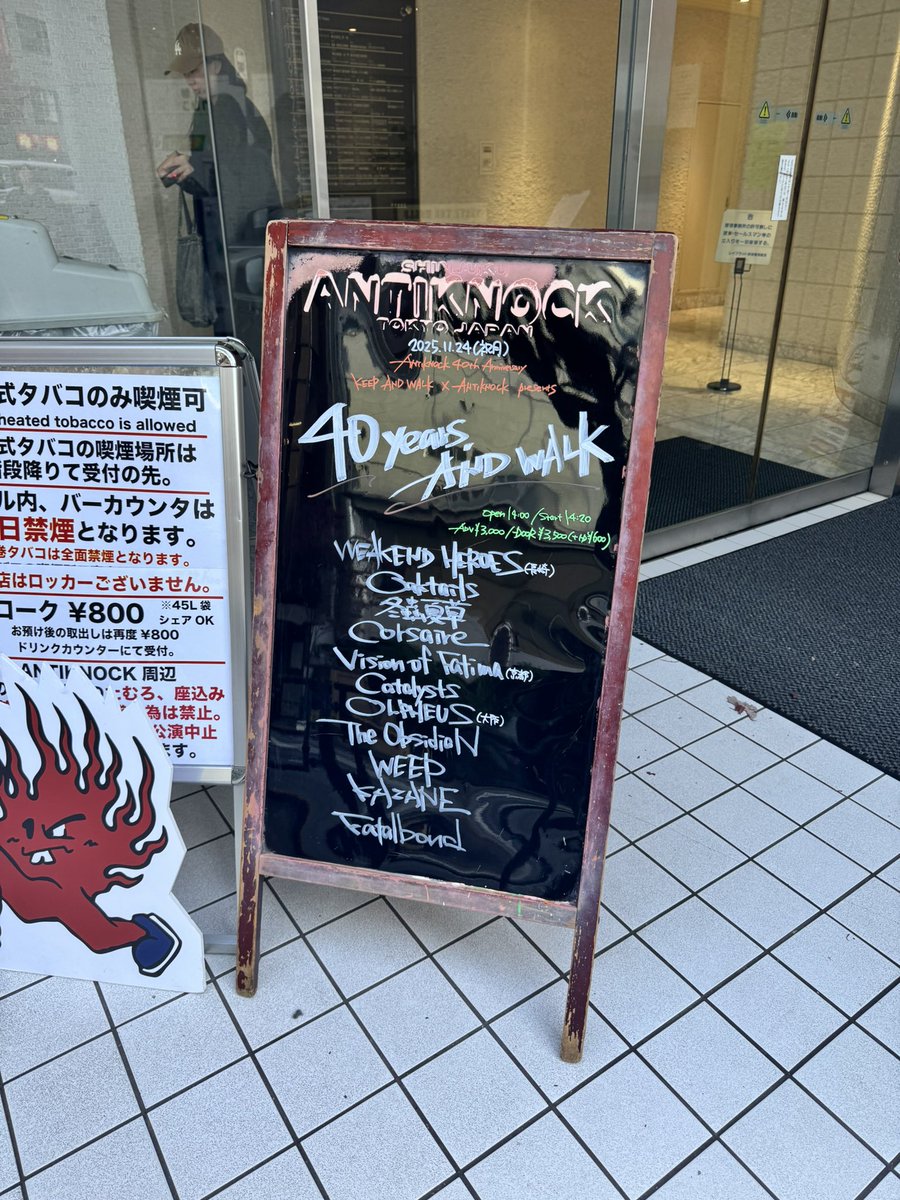 ANTIKNOCK
TOKYO JAPAN
2025.11.24(祝月)
Antiknock 40th Anniversary
KEEP AND WALK × ANTIKNOCK presents
40 years.
AND WALK
open 14:00 / Start 14:20
Adv ¥3,000 / DooR ¥3,500 (+1D ¥600)
WEAKEND HEROES(長崎)
Oaktails
冬蟲夏草
Corsaire
Vision of Fatima(京都)
Catalysts
OLPHEUS(大阪)
The ObsidiaN
WEEP
KAZANE
Fatalbond
式タバコのみ喫煙可
heated tobacco is allowed
式タバコの喫煙場所は
階段降りて受付の先。
ル内、バーカウンタは
日禁煙となります。
巻タバコは全面禁煙となります。
店はロッカーございません。
ローク ¥800
※45L 袋
シェア OK
お預け後の取出しは再度 ¥800
ドリンクカウンターにて受付。
ANTIKNOCK 周辺
むろ、座込み
為は禁止。
公演中止
ます。